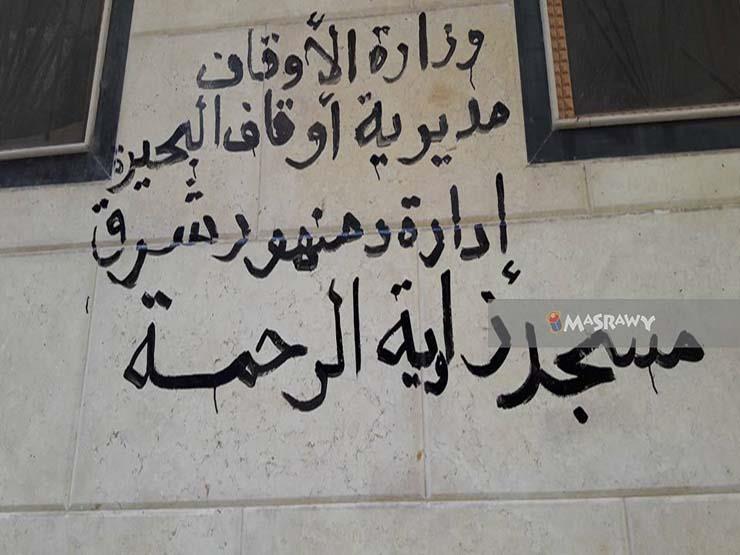 وزارة الأوقاف
مديرية أوقاف البحيرة
إدارة دمنهور شرق
مسجد زاوية الرحمة
MASRAWY